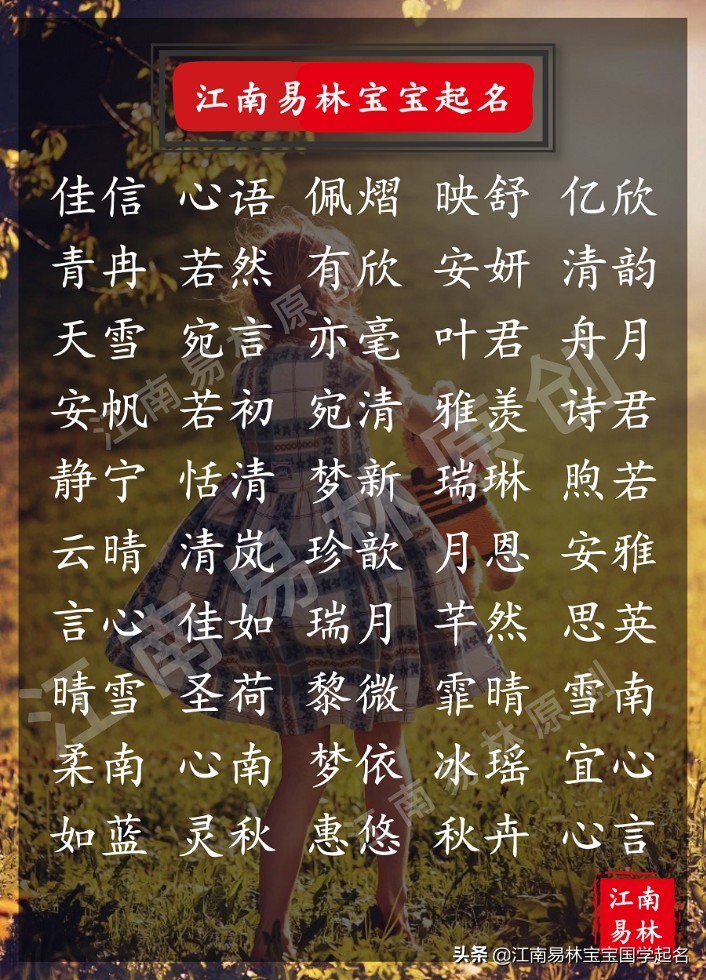 江南易林宝宝起名
佳信 心语 佩熠 映舒 亿欣
青冉 若然 有欣 安妍 清韵
天雪 宛言 亦毫 叶君 舟月
安帆 若初 宛清 雅羡 诗君
静宁 恬清 梦新 瑞琳 煦若
云晴 清岚 珍歆 月恩 安雅
言心 佳如 瑞月 芊然 思英
晴雪 圣荷 黎微 霏晴 雪南
柔南 心南 梦依 冰瑶 宜心
如蓝 灵秋 惠悠 秋卉 心言
江南易林原创
江南易林原创
江南易林原创
江南
易林
头条 @江南易林宝宝国学起名